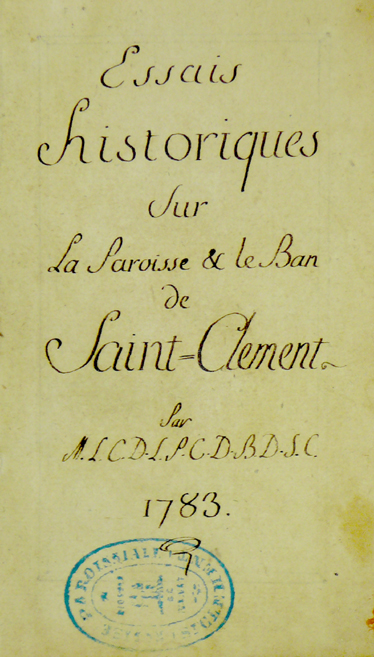 Essais
historiques
Sur
La Paroisse & le Ban
de
Saint=Clement
Par
M. L. C. D. L. P. C. D. B. D. S. C.
1783.